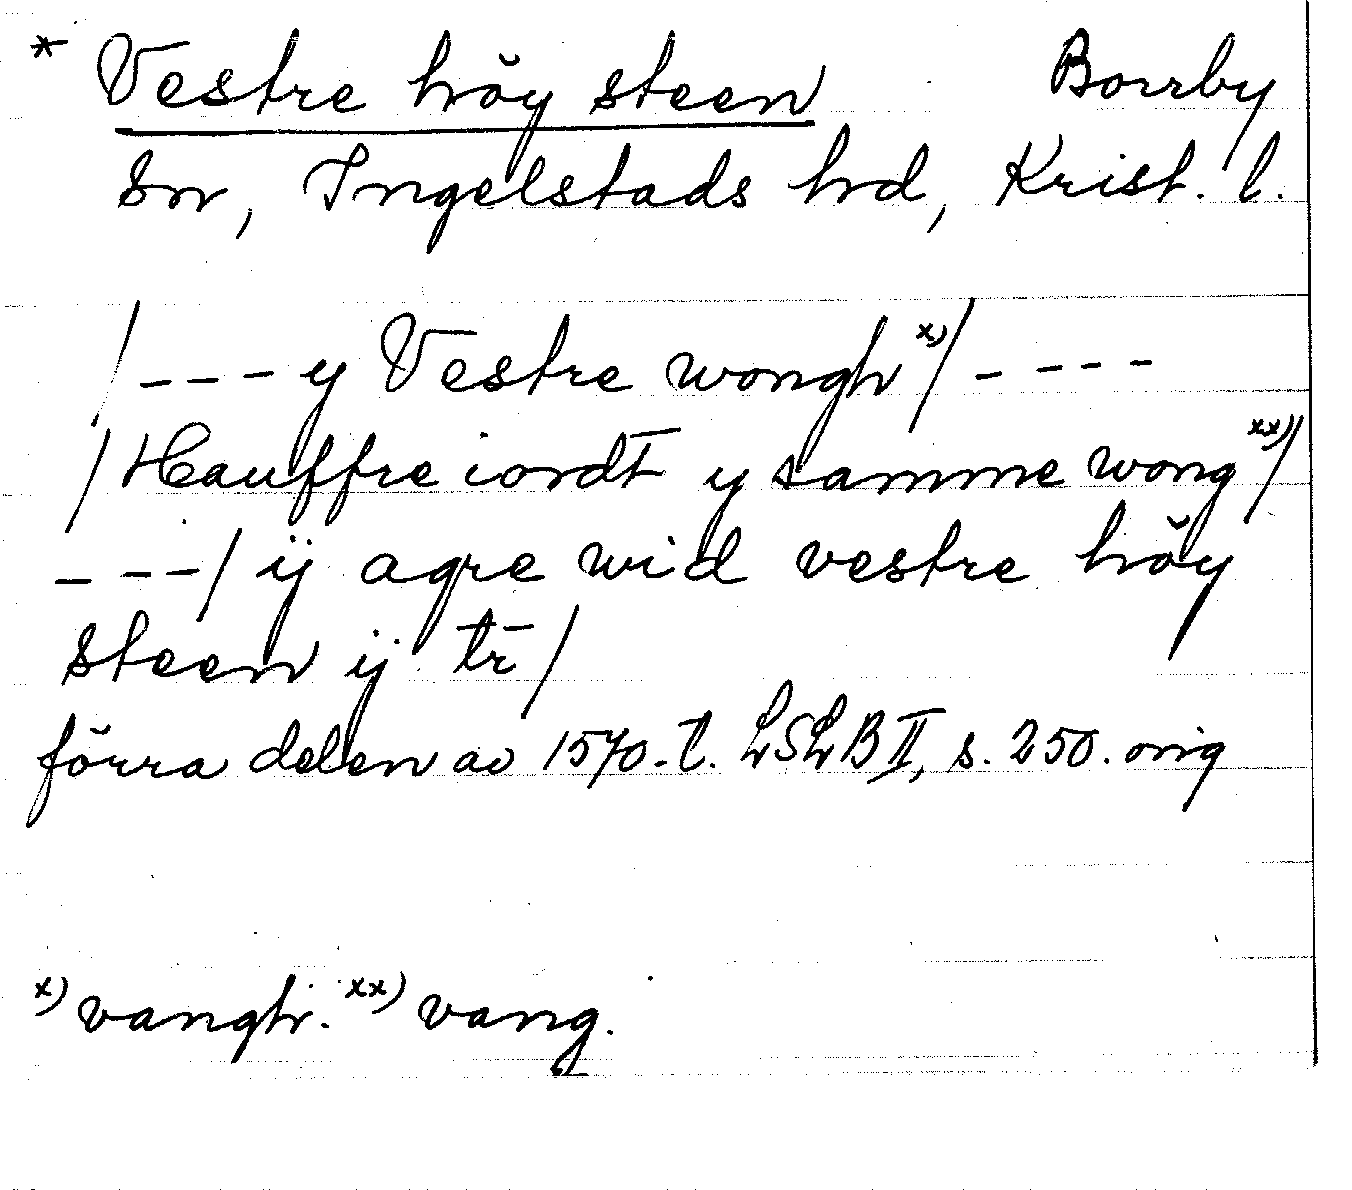 * Vestre höy steen Borrby
sn, Ingelstads hd, Krist. l.
/--- y Vestre wongh x)/ ----
/Hauffre iordt y samme wong xx)/
---/ ij agre wid vestre höy
steen ij tr̄/
förra delen av 1570-t. LSLB II, s. 250. orig
x) vangh. xx) vang.